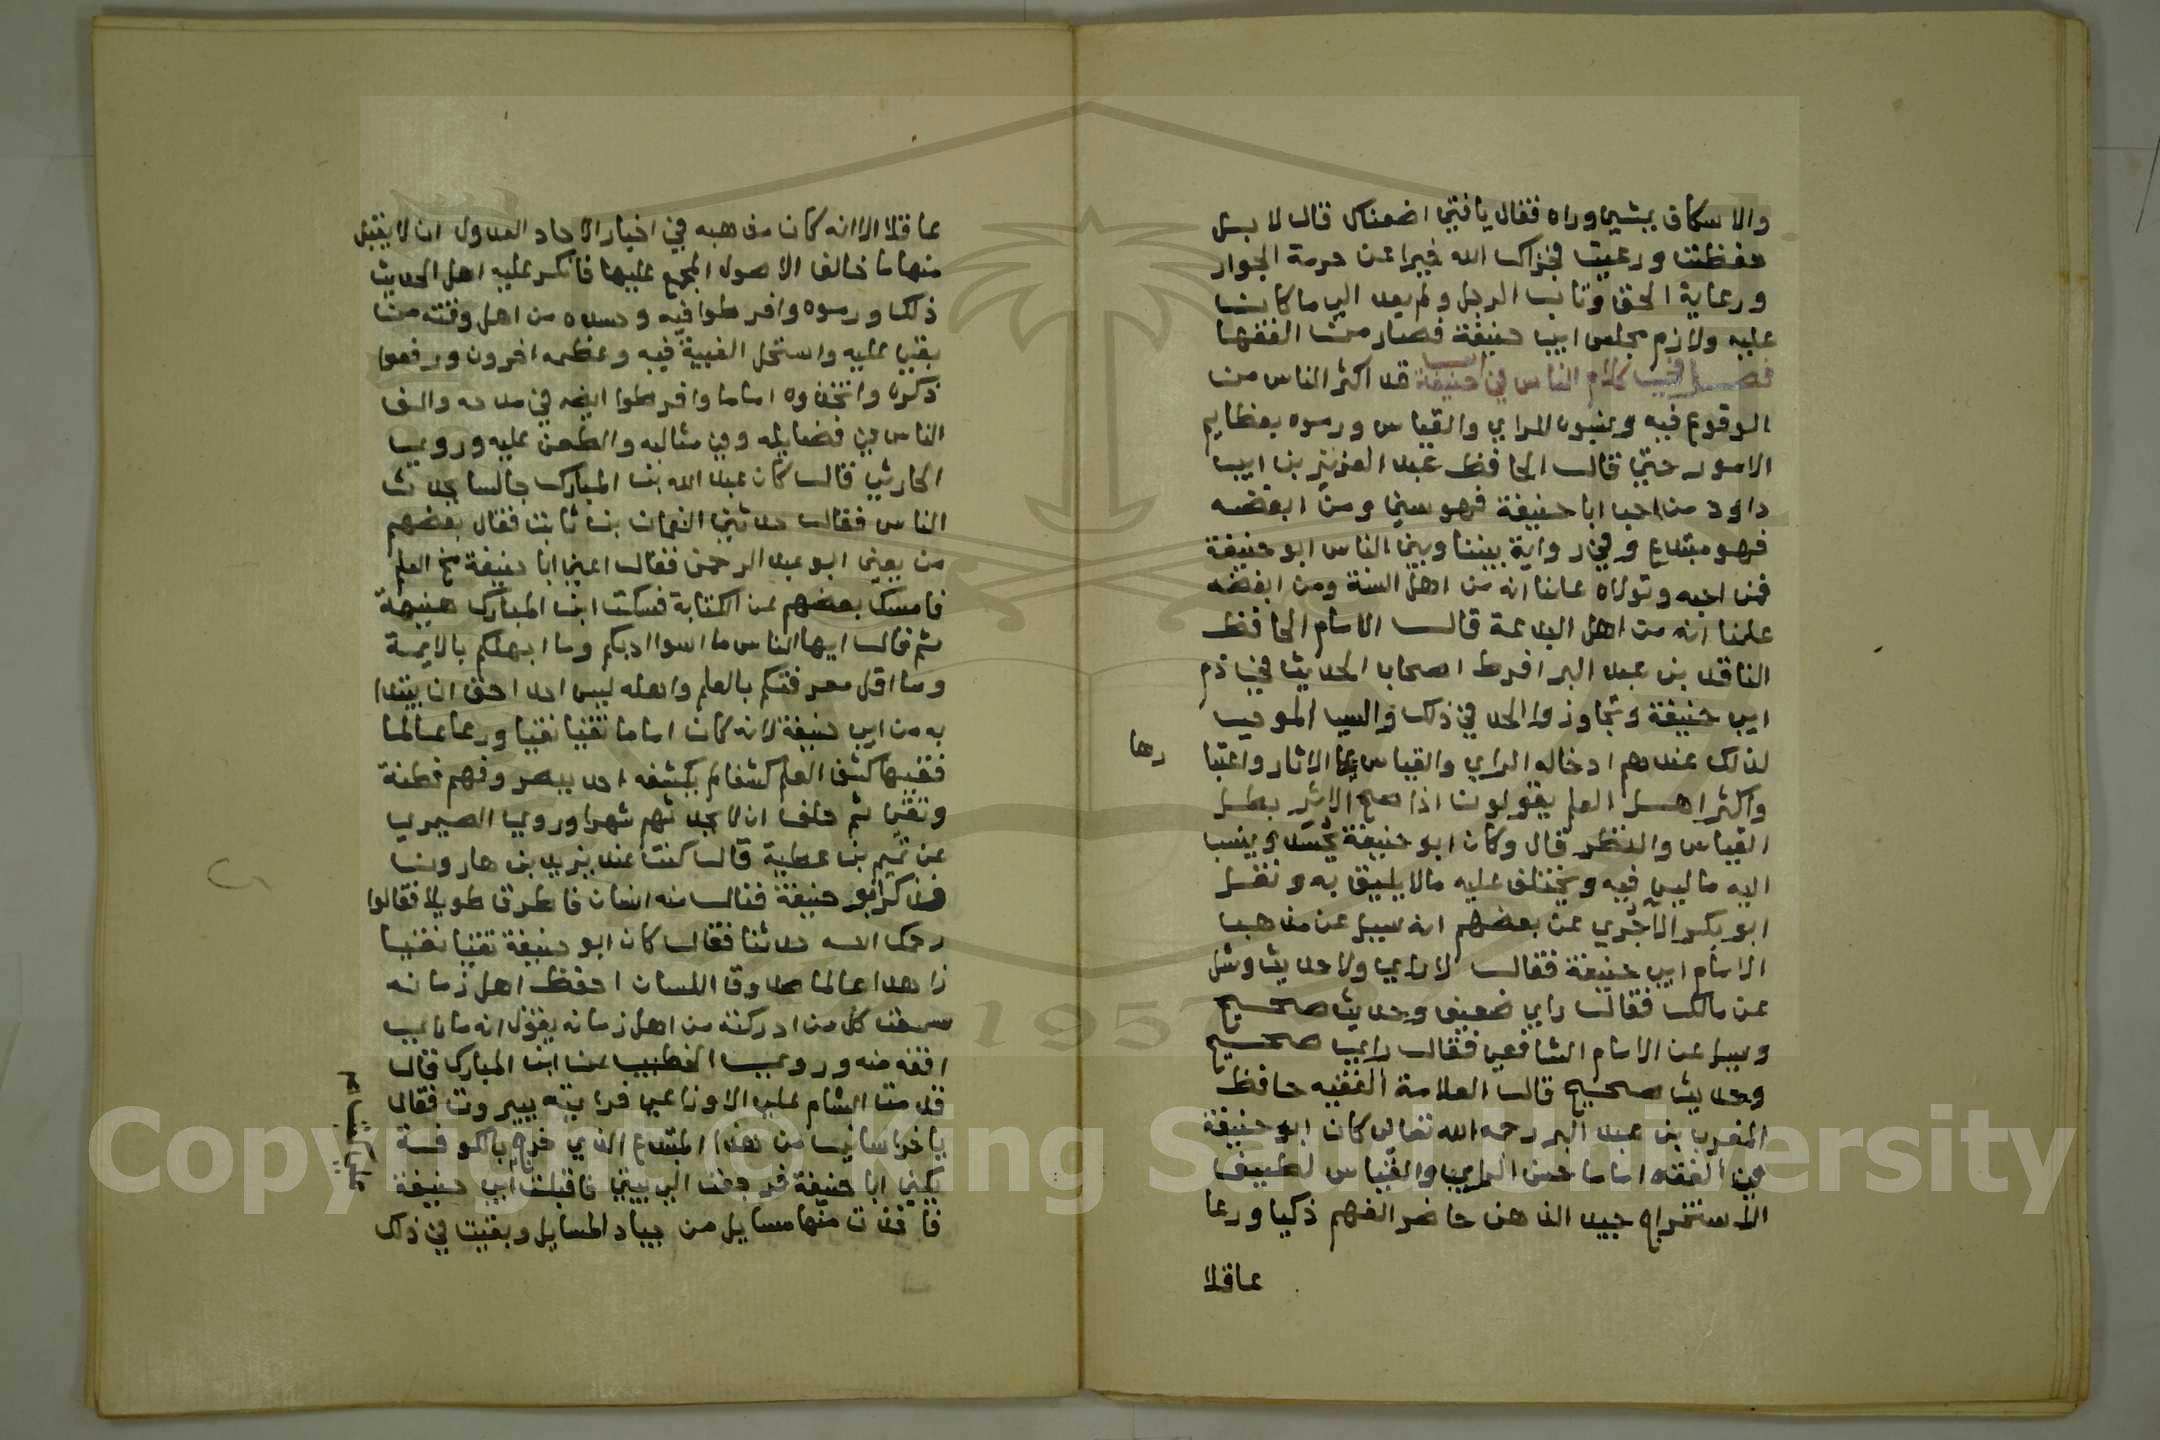 والاسكاف يمشي وراه فقال يا فتي اضعناك قال لا بل
حفظت ورعيت فجزاك الله خيرا عن حرمة الجوار
ورعاية الحق وتاب الرجل ولم يعد الي ما كان
عليه ولازم مجلس ابي حنيفة فصار من الفقها
فصل في كلام الناس في ابي حنيفة قد اكثر الناس من
الوقوع فيه وينسبونه للراي والقياس ورموه بعظايم
الامور حتي قال الحافظ عبد العزيز بن ابي
داود من احب ابا حنيفة فهو سني ومن ابغضه
فهو مبتدع وفي رواية بيننا وبين الناس ابو حنيفة
فمن احبه وتولاه علمنا انه من اهل السنة ومن ابغضه
علمنا انه من اهل البدعة قال الامام الحافظ
الناقد بن عبد البر افرط اصحاب الحديث في ذم
ابي حنيفة وتجاوزوا الحد في ذلك والسبب الموجب
لذلك عندهم ادخاله الراي والقياس علي الاثار واعتبا
رها
واكثر اهل العلم يقولون اذا صح الاثر بطل
القياس والنظر قال وكان ابو حنيفة يحسد وينسب
اليه ما ليس فيه ويختلق عليه مالا يليق به ونقل
ابو بكر الآجري عن بعضهم انه سيل عن مذهب
الامام ابي حنيفة فقال لا راي ولا حديث وسئل
عن مالك فقال راي ضعيف وحديث صحيح
وسيل عن الامام الشافعي فقال راي صحيح
وحديث صحيح قال العلامة الفقيه حافظ
المغرب بن عبد البر رحمه الله تعالي كان ابو حنيفة
في الفقه اماما حسن الراي والقياس لطيف
الاستخراج جيد الذهن حاضر الفهم ذكيا ورعا
عاقلا
عاقلا الا انه كان مذهبه في اخبار الاحاد العدول ان لا يقبل
منها ما خالف الاصول المجمع عليها فانكر عليه اهل الحديث
ذلك ورموه وافرطوا فيه وحسده من اهل وقته من
بغي عليه واستحل الغيبة فيه وعظمه اخرون ورفعوا
ذكره واتخذوه اماما وافرطوا ايضا في مدحه والف
الناس في فضايله وفي مثالبه والطعن عليه وروي
الحارثي قال كان عبد الله بن المبارك جالسا يحدث
الناس فقال حدثني النعمان بن ثابت فقال بعضهم
من يعني ابو عبد الرحمن فقال اعني ابا حنيفة مخ العلم
فامسك بعضهم عن الكتابة فسكت ابن المبارك هنيهة
ثم قال ايها الناس ما اسوا ادبكم وما اجهلكم بالايمة
وما اقل معرفتكم بالعلم واهله ليس احد احق ان يقتدا
به من ابي حنيفة لانه كان اماما تقيا نقيا ورعا عالما
فقيها كشف العلم كشفا لم يكشفه احد ببصر وفهم فطنة
وتقي ثم حلف ان لا يحدثهم شهرا وروي الصيمري
عن تميم بن عطية قال كنت عند يزيد بن هارون
فذكر ابو حنيفة فنال منه انسان فاطرق طويلا فقالوا
رحمك الله حدثنا فقال كان ابو حنيفة تقيا نقيا
زاهدا عالما صدوق اللسان احفظ اهل زمانه
سمعت كل من ادركته من اهل زمانه يقول انه ما راي
افقه منه وروي الخطيب عن ابن المبارك قال
قدمت الشام علي الاوزاعي فرايته ببيروت فقال
يا خراساني من هذا المبتدع الذي خرج بالكوفة
يكني ابا حنيفة فرجعت الي بيتي فاقبلت ابي حنيفة
فاخذت منها مسايل من جياد المسايل وبقيت في ذلك
علي كتب
Copyright © King Saud University
1957